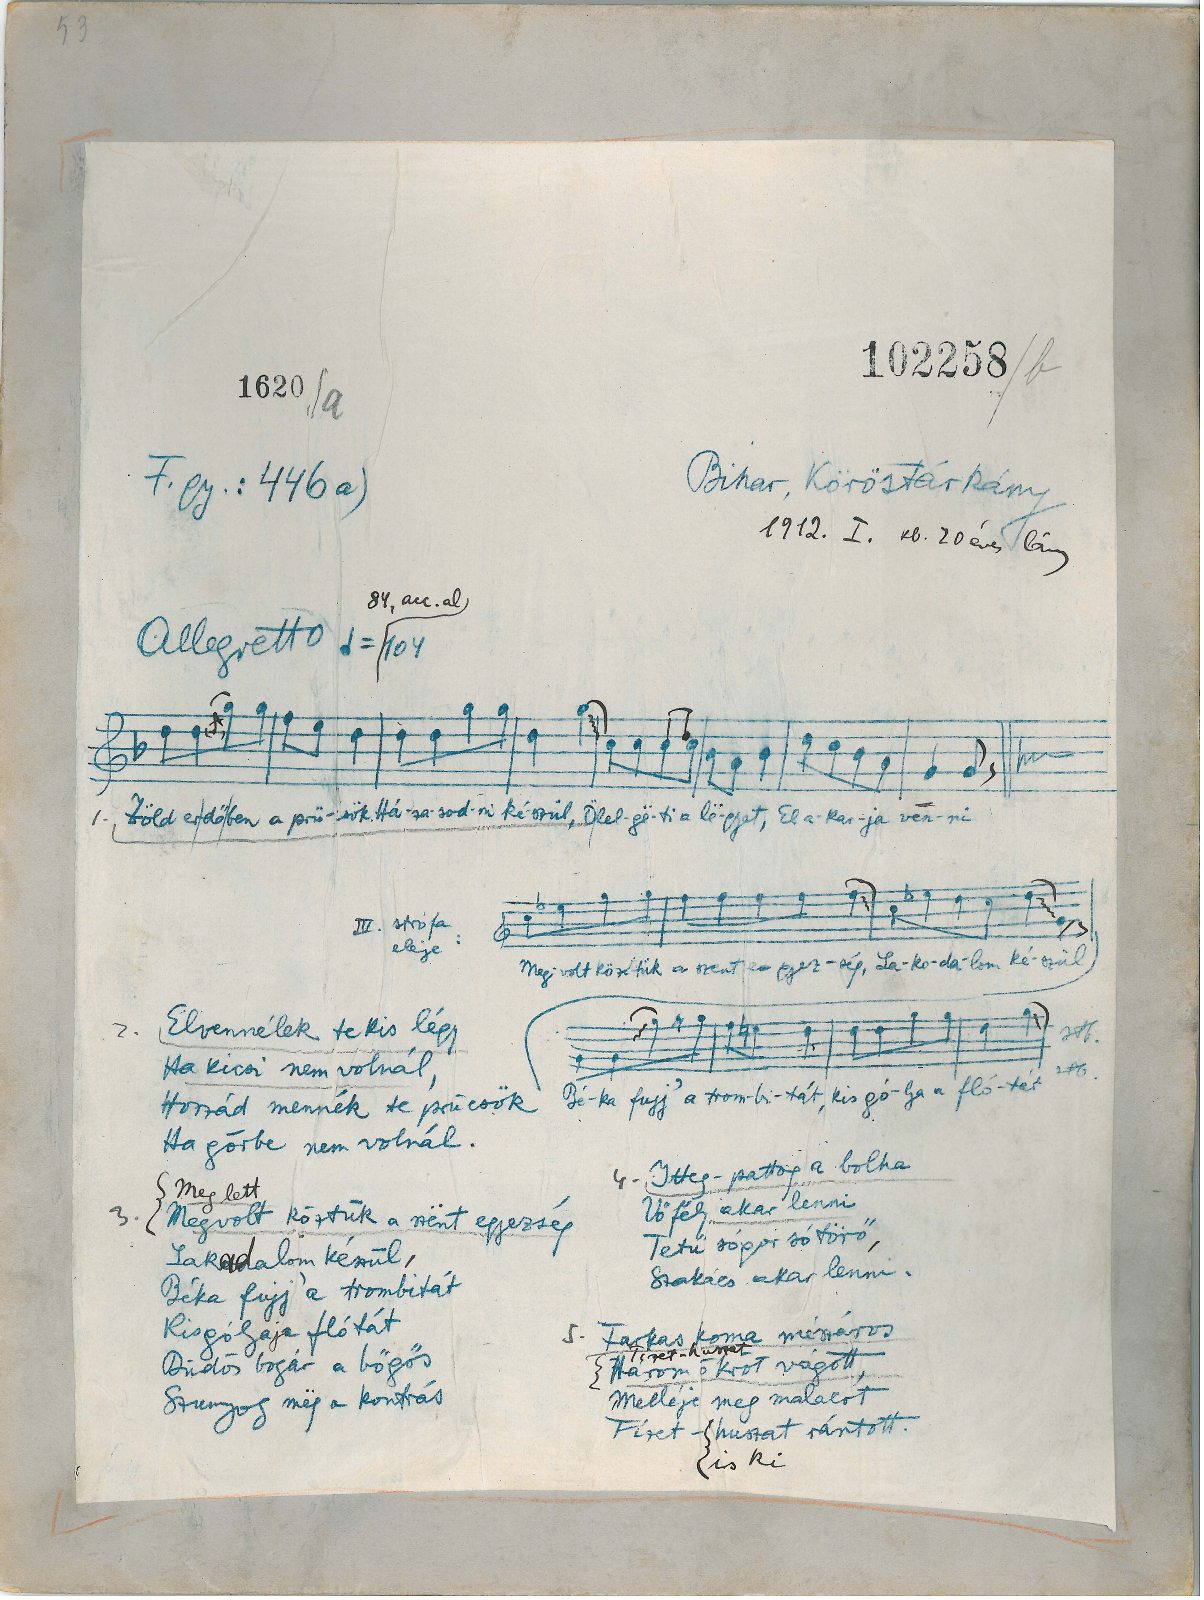 53
1620/a
102258/b
F. gy.: 446 a)
Bihar, Köröstárkány
1912. I. kb. 20 éves lány
84, acc. al
Allegretto ♩= 104
1. Zöld erdőben a prü-csök, Há-za-sod-ni ké-szül, Ölel-gë-ti a lë-gyet, El a-kar-ja vën-ni
III. strófa
eleje:
Meg-volt köztük a szent e-gyez-ség, La-ko-da-lom ké-szül
2. Elvennélek te kis légy
Ha kicsi nem volnál,
Hozzád mennék te prücsök
Ha görbe nem volnál.
Bé-ka fujj' a trom-bi-tát, kis gó-lya a fló-tát
stb.
stb.
Meg lett
3. Megvolt köztük a szent egyezség
Lakadalom készül,
Béka fujj' a trombitát
Kisgólyaja flótát
Büdös bogár a bőgős
Szunyog mëg a kontrás
4. Itteg-pattog a bolha
Vőfélj akar lenni
Tetű sóppr sótörő,
Szakács akar lenni.
5. Farkas koma mészáros
Három ökröt vágott,
Melléje meg malacot
Firet-huszat rántott.
is ki